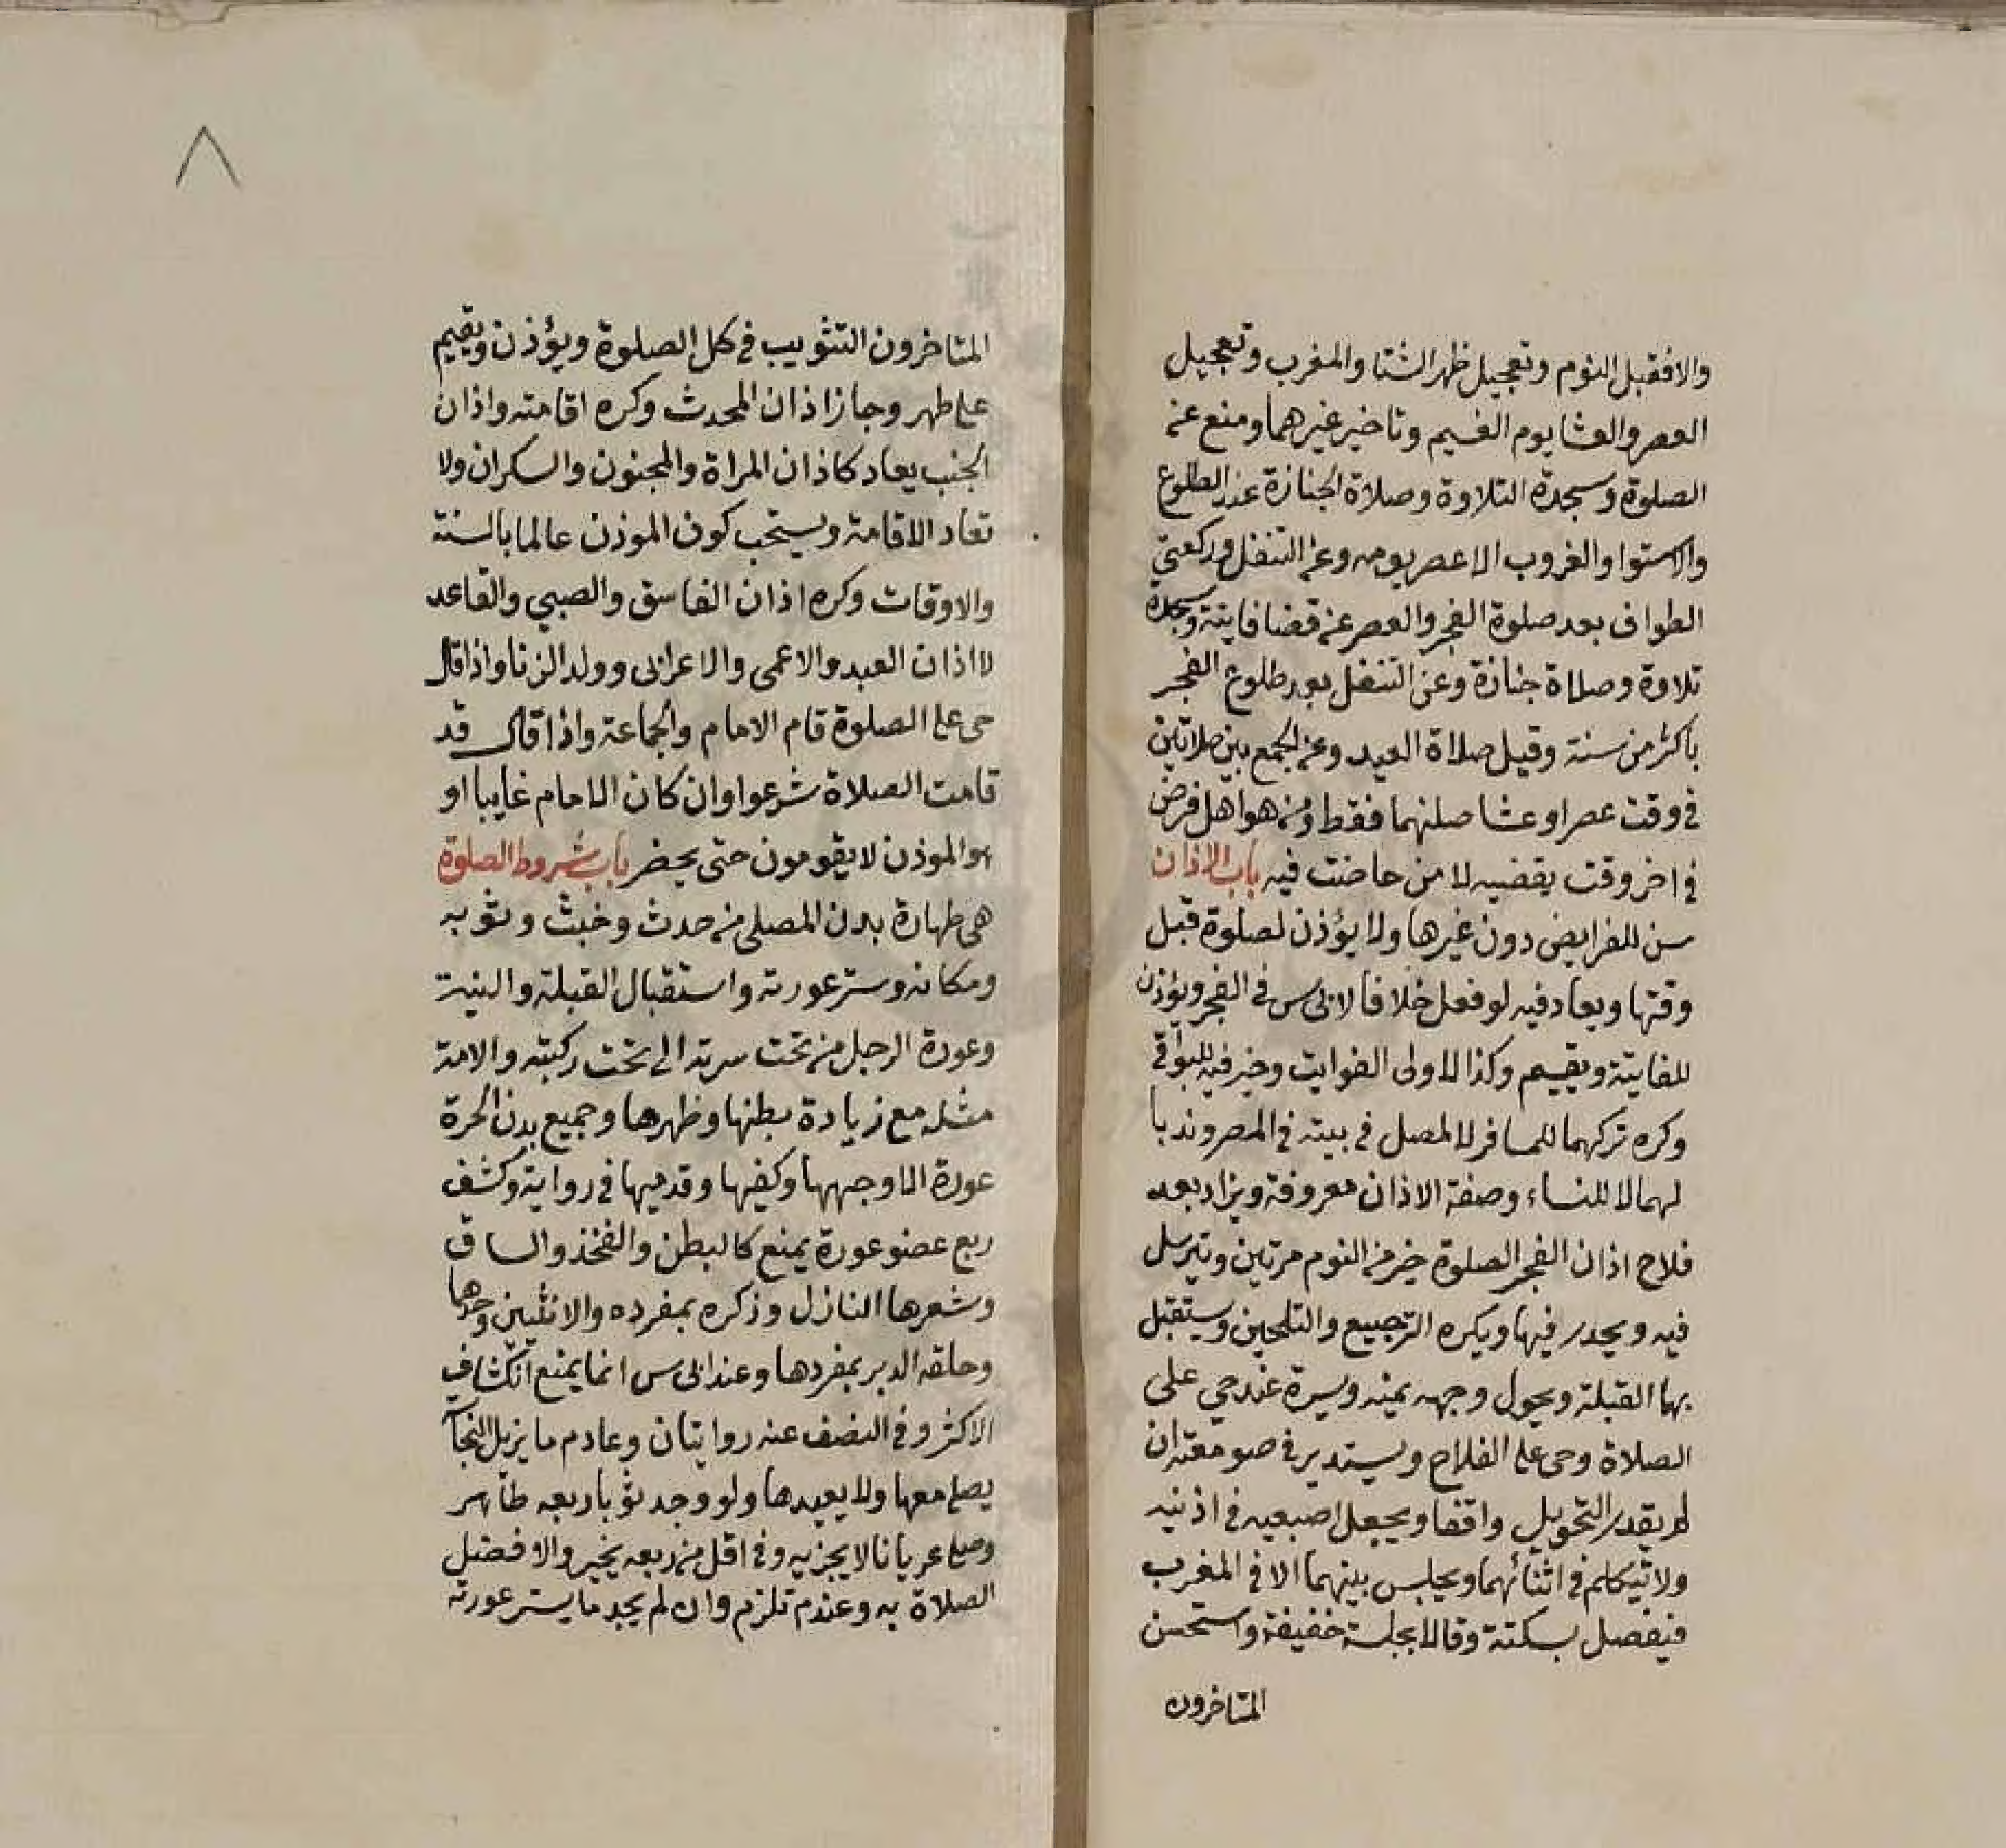 والا فقبل النوم وتعجيل ظهر الشتا والمغرب وتعجيل
العصر والعشا يوم الغيم وتاخير غيرهما ومنع عن
الصلوة وسجدة التلاوة وصلاة الجنازة عند الطلوع
والاستوا والغروب الا عصر يومه وعن التنفل وركعتي
الطواف بعد صلوة الفجر والعصر عن قضا فايتة وسجدة
تلاوة وصلاة جنازة وعن التنفل بعد طلوع الفجر
باكثر من سنته وقبل صلاة العيد وعن الجمع بين صلاتين
في وقت عصر او عشا صلتهما فقط ومن هو اهل فرض
في اخر وقت يقضيه لا من حاضت فيه باب الاذان
سن للفرايض دون غيرها ولا يؤذن لصلوة قبل
وقتها ويعاد فيه لو فعل خلافا لابي س في الفجر ويؤذن
للفايتة ويقيم وكذا لاولى الفوايت وخير فيه للبواقي
وكره تركهما للمسافر لا لمصل في بيته في المصر وندبا
لهما لا للنساء وصفة الاذان معروفة ويزاد بعد
فلاح اذان الفجر الصلوة خير من النوم مرتين ويترسل
فيه ويحدر فيها ويكره الترجيع والتلحين ويستقبل
بها القبلة ويحول وجهه يمنه ويسرة عند حي على
الصلاة وحي على الفلاح ويستدير في صومعته ان
لم يقدر التحويل واقفا ويجعل اصبعيه في اذنيه
ولا تيكلم في اثنائهما ويجلس بينهما الا في المغرب
فيفصل بسكتة وقالا بجلسة خفيفة واستحسن
المتاخرون
٨
المتاخرون التثويب في كل الصلوة ويؤذن ويقيم
على طهر وجاز اذان المحدث وكره اقامته واذان
الجنب يعاد كاذان المراة والمجنون والسكران ولا
تعاد الاقامة ويستحب كون الموذن عالما بالسنة
والاوقات وكره اذان الفاسق والصبي والقاعد
لا اذان العبد والاعمى والاعرابي وولد الزنا واذا قال
حي على الصلوة قام الامام والجماعة واذا قال قد
قامت الصلاة شرعوا وان كان الامام غايبا او
هو الموذن لا يقومون حتى يحضر باب شروط الصلوة
هي طهارة بدن المصلي من حدث وخبث وثوبه
ومكانه وستر عورته واستقبال القبلة والنية
وعورة الرجل من تحت سرته الى تحت ركبته والامة
مثله مع زيادة بطنها وظهرها وجميع بدن الحرة
عورة الا وجهها وكفيها وقدميها في رواية وكشف
ربع عضو عورة يمنع كالبطن والفخذ والساق
وشعرها النازل وذكره بمفرده والانثيين وحدها
وحلقه الدبر بمفردها وعند ابي س انما يمنع انكشاف
الاكثر وفي النصف عنه روايتان وعادم ما يزيل النجاسة
يصلي معها ولا يعيدها ولو وجد ثوبا ربعه طاهر
وصلى عريانا لا يجزيه وفي اقل من ربعه يخير والافضل
الصلاة به وعند م تلزم وان لم يجد ما يستر عورته